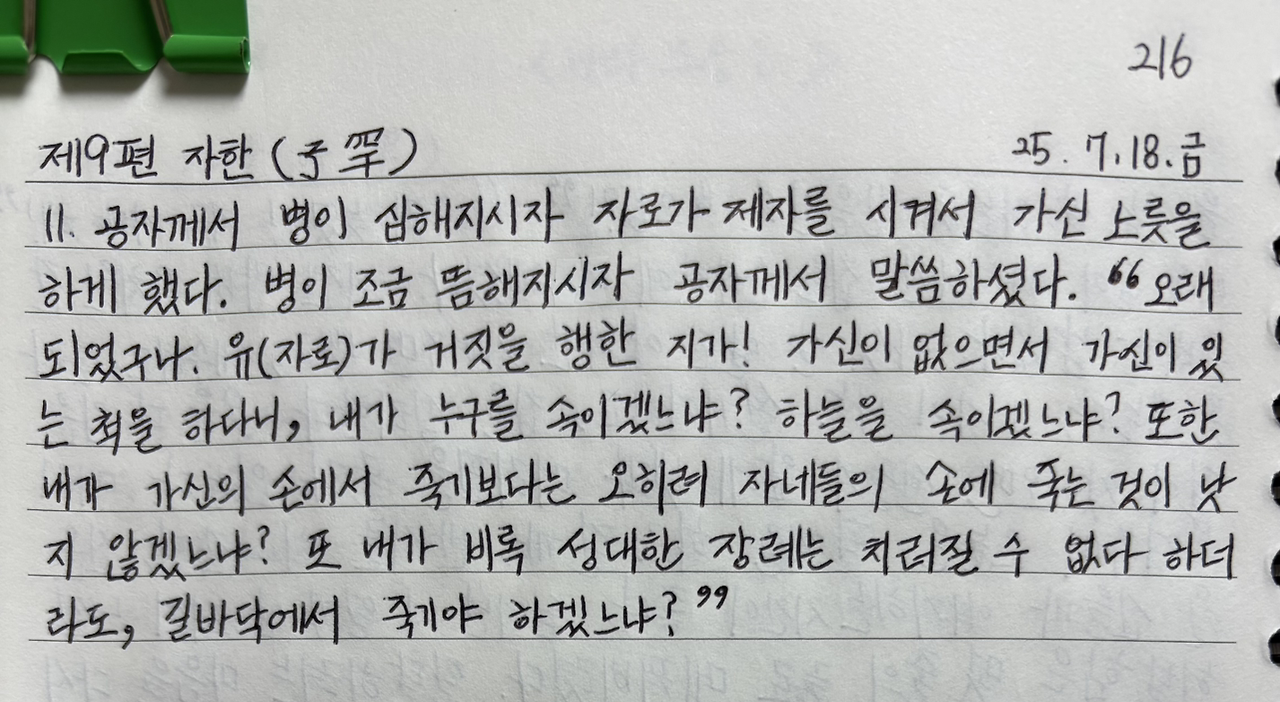 216
제9편 자한(子罕) 25. 7. 18. 금
11. 공자께서 병이 심해지시자 자로가 제자를 시켜서 가신 노릇을
하게 했다. 병이 조금 뜸해지시자 공자께서 말씀하셨다. “오래
되었구나. 유(자로)가 거짓을 행한 지가! 가신이 없으면서 가신이 있
는 척을 하다니, 내가 누구를 속이겠느냐? 하늘을 속이겠느냐? 또한
내가 가신의 손에서 죽기보다는 오히려 자네들의 손에 죽는 것이 낫
지 않겠느냐? 또 내가 비록 성대한 장례는 치러질 수 없다 하더
라도, 길바닥에서 죽기야 하겠느냐?”